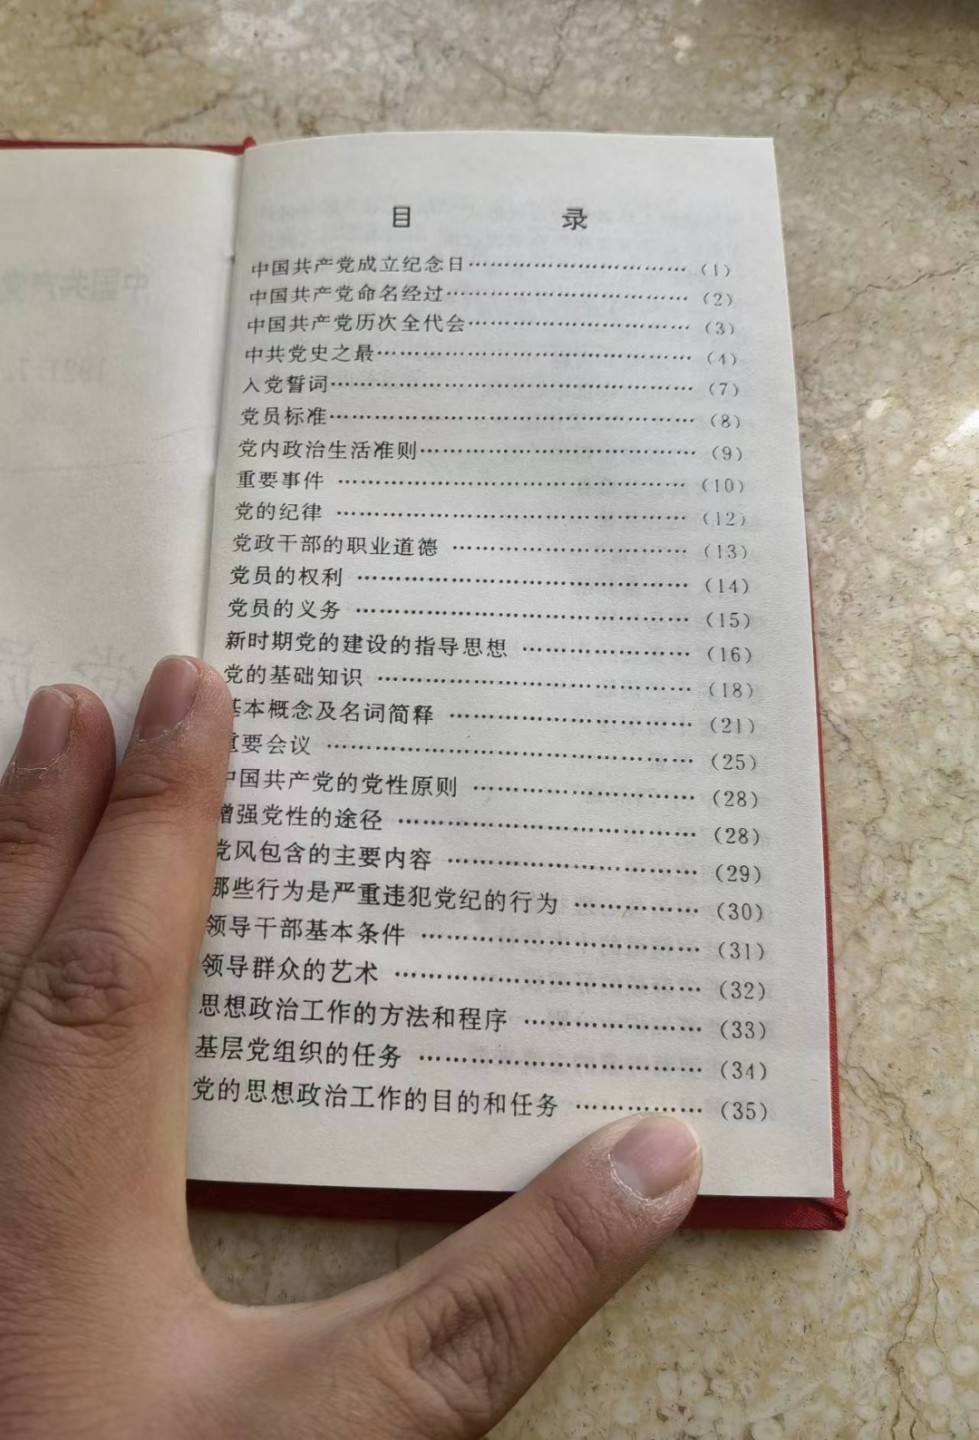 目 录
中国共产党成立纪念日……………………………（1）
中国共产党命名经过………………………………（2）
中国共产党历次全代会……………………………（3）
中共党史之最………………………………………（4）
入党誓词……………………………………………（7）
党员标准……………………………………………（8）
党内政治生活准则…………………………………（9）
重要事件 …………………………………………（10）
党的纪律 …………………………………………（12）
党政干部的职业道德 ……………………………（13）
党员的权利 ………………………………………（14）
党员的义务 ………………………………………（15）
新时期党的建设的指导思想 ……………………（16）
党的基础知识 ……………………………………（18）
基本概念及名词简释 ……………………………（21）
重要会议 …………………………………………（25）
中国共产党的党性原则 …………………………（28）
增强党性的途径 …………………………………（28）
党风包含的主要内容 ……………………………（29）
哪些行为是严重违犯党纪的行为 ……………（30）
领导干部基本条件 ………………………………（31）
领导群众的艺术 …………………………………（32）
思想政治工作的方法和程序 …………………（33）
基层党组织的任务 ………………………………（34）
党的思想政治工作的目的和任务 ……………（35）